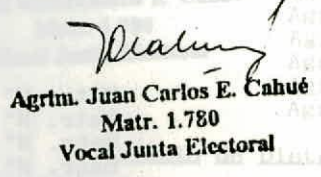 Agrim. Juan Carlos E. Cahué
Matr. 1.780
Vocal Junta Electoral